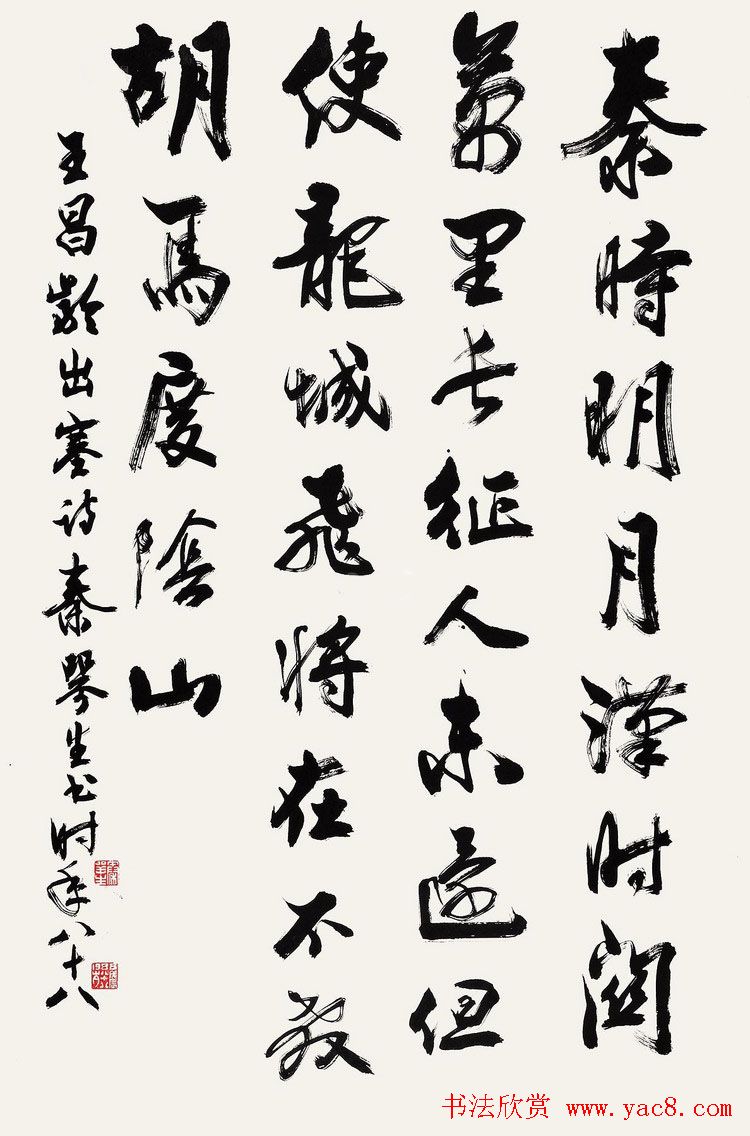 秦時明月漢时關
萬里长征人未還但
使龍城飛將在不教
胡馬度陰山
王昌齡出塞诗秦咢生书时年八十八
书法欣赏 www.yac8.com